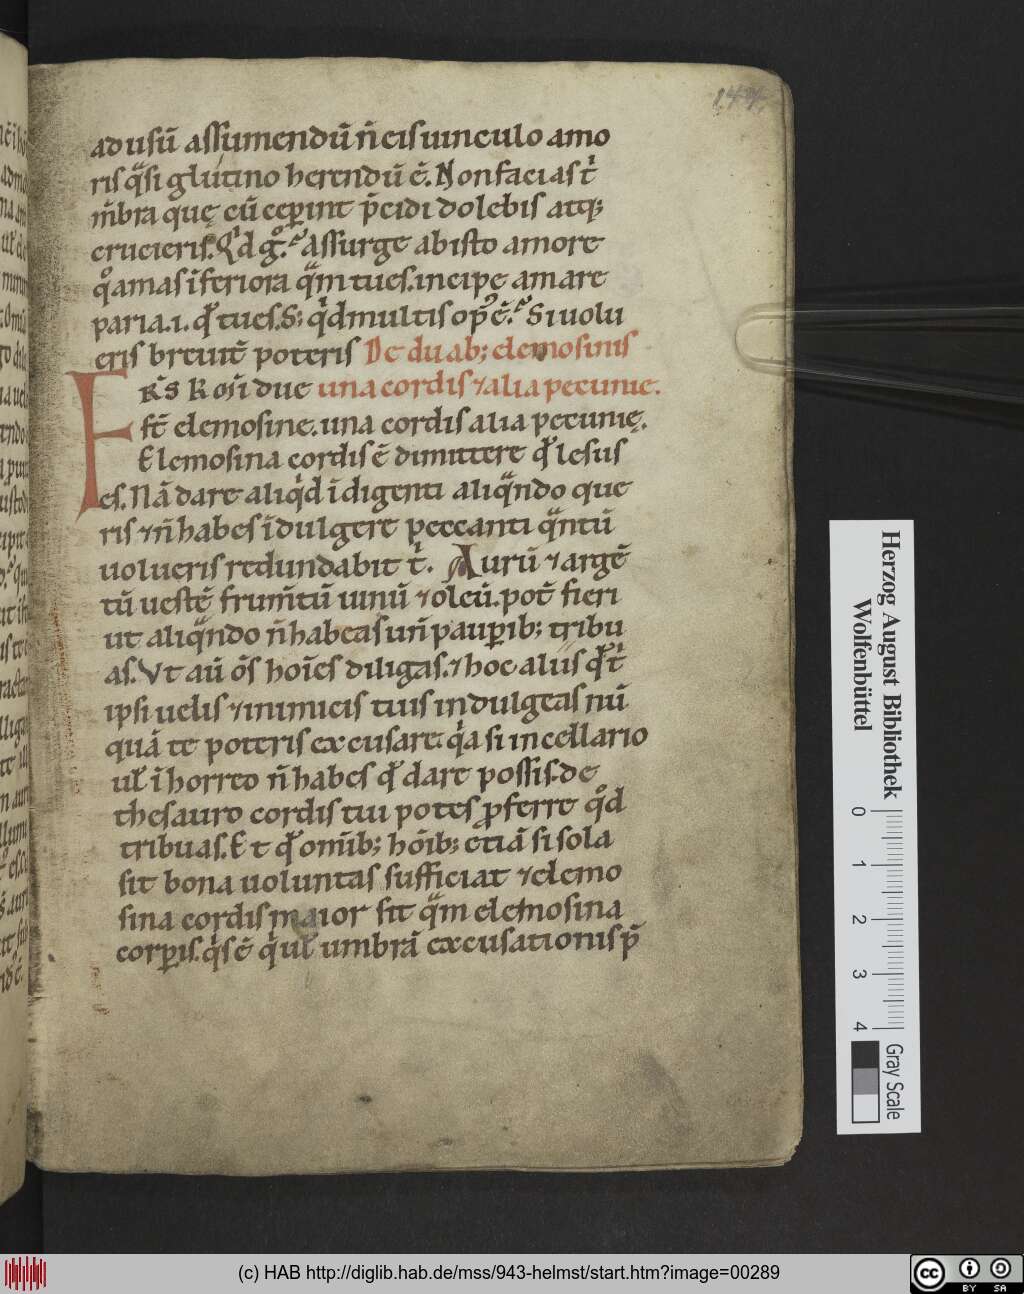 ad usū assumendū n̄ eis uinculo amo
ris qͣsi glutino herendū ē. Non facias t̓
m̄bra que cū ceꝑint p̄cidi dolebis atq;
crucieris. Qd g̊. assurge ab isto amore
q̊ amas īferiora qͣm tu es. incipe amare
paria .i. qd̓ tu es. S; qd̓ multis op̊ ē. Si uolu
eris breuit̄ poteris De duab; elemosinis
FRS Kom̄ due una cordis ⁊ alia pecunie.
st̄ elemosine. una cordis alia pecunię.
Elemosina cordis ē dimittere qd̓ lesus
es. Nā dare aliqd̓ īdigenti aliqͣndo que
ris ⁊ n̄ habes īdulgere peccanti qͣntū
uolueris redundabit t̓. Aurū ⁊ argē
tū uestē frum̄tū uinū ⁊ oleū. pot̄ fieri
ut aliqͣndo n̄ habeas un̄ pauꝑib; tribu
as. Vt aū ōs hoīes diligas. ⁊ hoc aliis qd̓ t̓
ipsi uelis ⁊ inimicis tuis indulgeas nū
quā te poteris excusare. qͥa si in cellario
ul̄ ī horreo n̄ habes qd̓ dare possis. de
thesauro cordis tui potes ꝓferre q̊d
tribuas. Et qd̓ om̄ib; hōib; etiā si sola
sit bona uoluntas sufficiat ⁊ elemo
sina cordis maior sit qͣm elemosina
corꝑis. qͥs ē qͥ ul̄ umbrā excusationis p̄
Herzog August Bibliothek
Wolfenbüttel
0 1 2 3 4
Gray Scale
(c) HAB http://diglib.hab.de/mss/943-helmst/start.htm?image=00289
cc BY SA